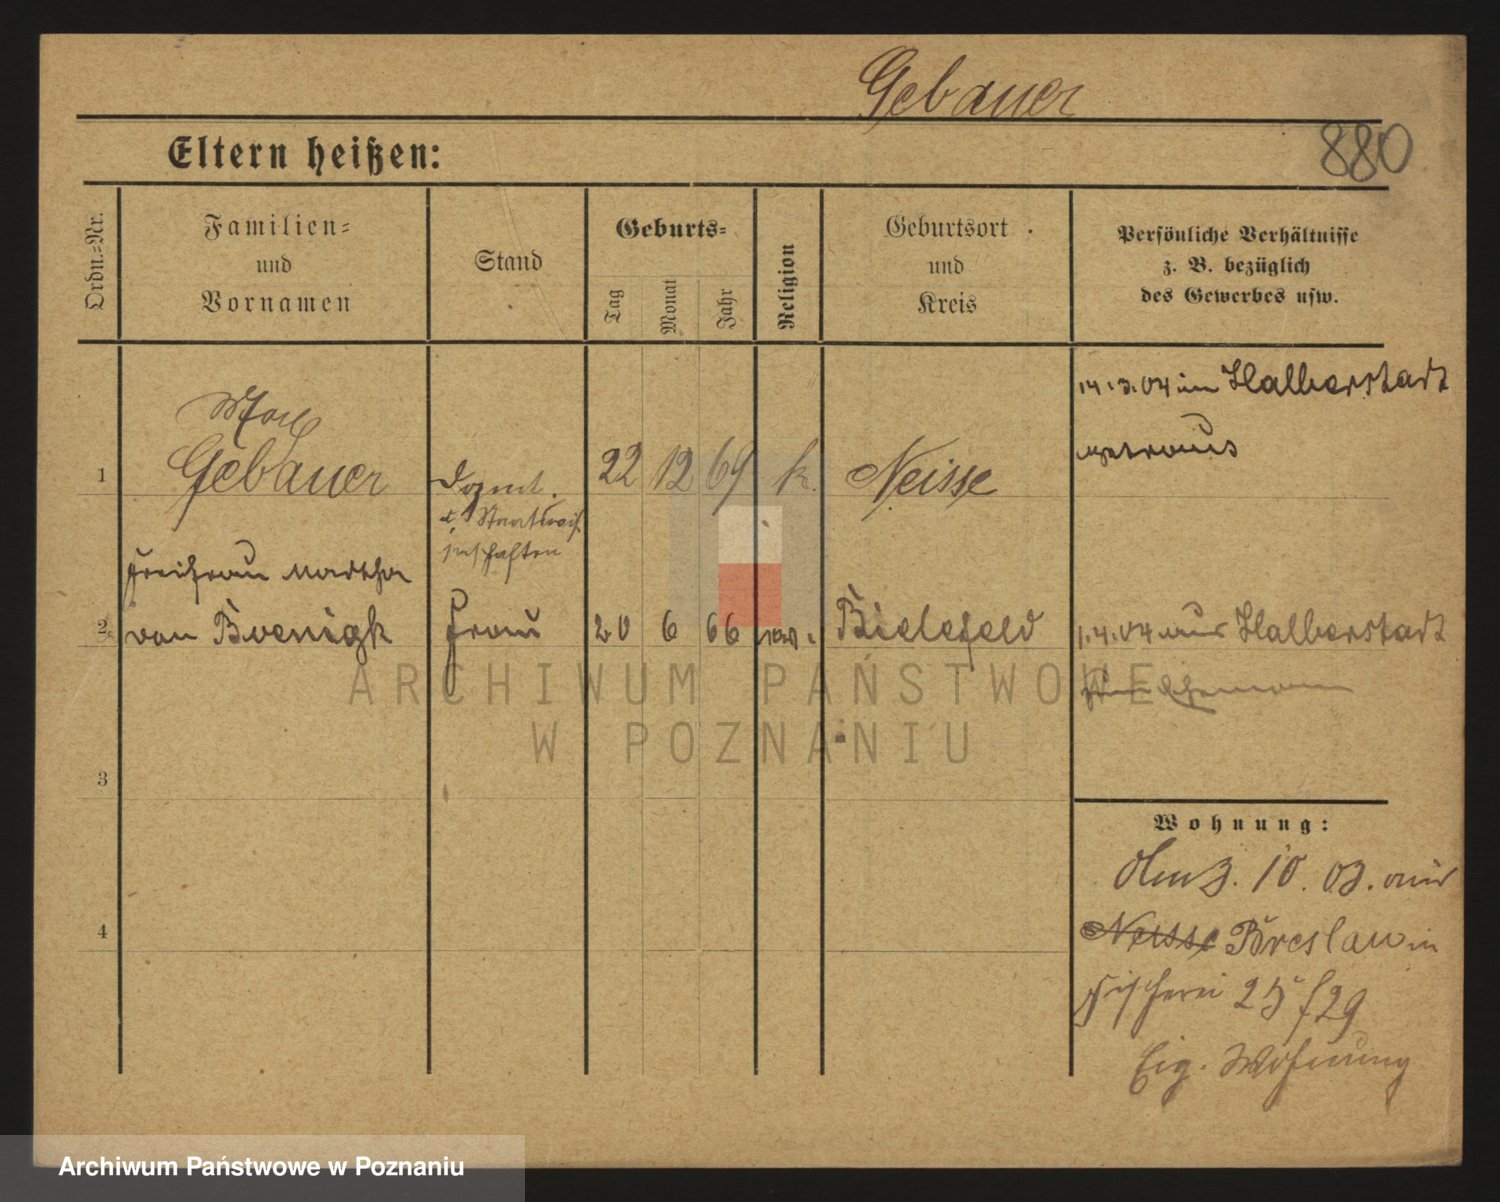 Gebauer
880
Eltern heißen:
Ordn.-Nr.
Familien-
und
Vornamen
Stand
Geburts-
Tag
Monat
Jahr
Religion
Geburtsort
und
Kreis
Persönliche Verhältnisse
z. B. bezüglich
des Gewerbes usw.
14.3.04 in Halberstadt
getraut
Max
1 Gebauer Dozent. 22 12 69 k. Neisse
d. Staatswis-
senschaften
Freifrau Martha
2 von Boenigk Frau 20 6 66 ev. Bielefeld 1.4.04 aus Halberstadt
3
4
Wohnung:
Am 3. 10. 03. aus
Neisse Breslau in
Fischerei 25 f 29
Eig. Wohnung
ARCHIWUM PAŃSTWOWE
W POZNANIU
Archiwum Państwowe w Poznaniu